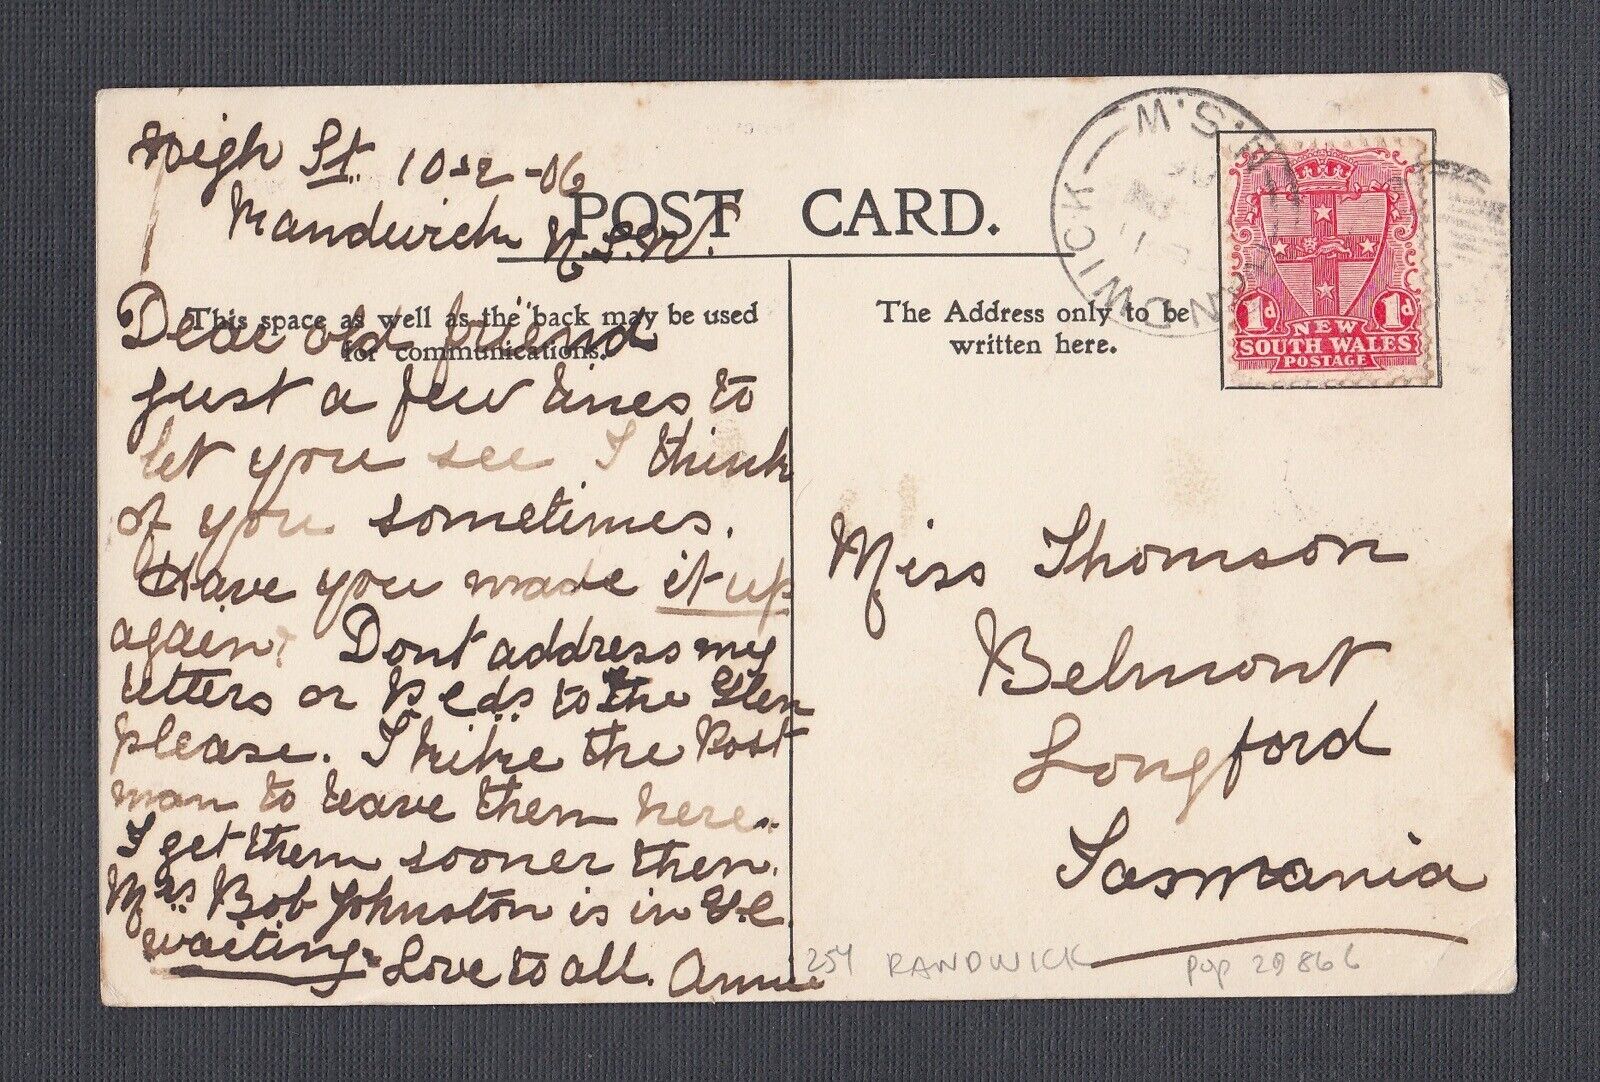 High St. 10-2-06
Randwick N.S.W.
POST CARD.
This space as well as the back may be used
for communications.
The Address only to be
written here.
Dear old friend
just a few lines to
let you see I think
of you sometimes.
Have you made it up
again? Dont address my
letters or P.c.ds to the Glen
please. I like the Post
man to leave them here.
I get them sooner then.
Mrs Bob Johnston is in
waiting. Love to all. Annie
Miss Thomson
Belmont
Longford
Tasmania
RANDWICK
N.S.W
1d 1d
NEW
SOUTH WALES
POSTAGE
254 RANDWICK pop 29866